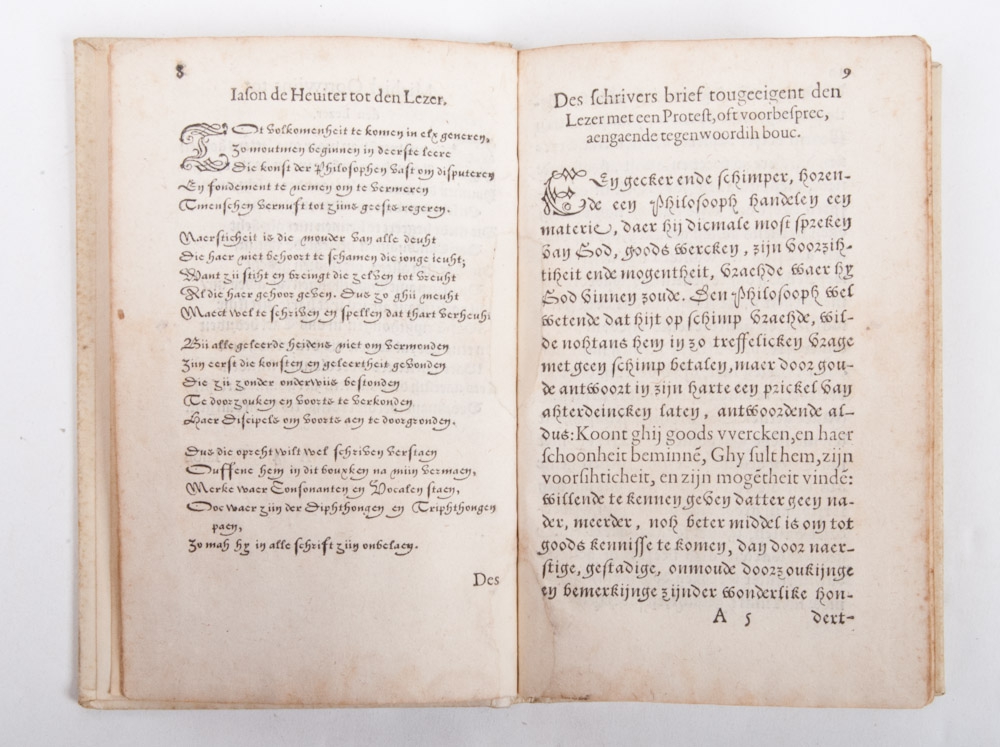 8
Iason de Heuiter tot den Lezer.
TOt volkomenheit te komen in elx generen,
Zo moutmen beginnen in deerste leere
Die konst der Philosophen vast om disputeren
En fondement te nemen om te vermeren
Tmenschen vernuft tot ziins geests regeren.
Naersticheit is die mouder van alle deuht
Die haer niet behoort te schamen die jonge ieuht;
Want zii stiht en breingt die zelven tot vreuht
Al die haer gehoor geven. Dus zo ghii meuht
Maect wel te schriven en spellen dat thart verheuht
Bii alle geleerde heidens niet om vermonden
Ziin eerst die konsten en geleertheit gevonden
Die zii zonder onderwiis bestonden
Te doorzouken en voorts te verkonden
Haer Discipels om voorts aen te doorgronden.
Dus die opreht wilt wel schriven verstaen
Ouffene hem in dit bouxken na miin vermaen,
Merke waer Consonanten en Vocalen staen,
Ooc waer ziin der Diphthongen en Triphthongen
paen,
Zo mah hy in alle schrift ziin onbelaen.
Des
9
Des schrivers brief tougeeigent den
Lezer met een Protest, oft voorbesprec,
aengaende tegenwoordih bouc.
EEn gecker ende schimper, horen-
de een Philosooph handelen een
materie, daer hij dicmale most spreken
van God, goods wercken, zijn voorzih-
tiheit ende mogentheit, vraehde waer hy
God vinnen zoude. Een Philosooph wel
wetende dat hijt op schimp vraehde, wil-
de nohtans hem in zo treffelicken vrage
met geen schimp betalen, maer door gou-
de antwoort in zijn harte een prickel van
ahterdeincken laten, antwoordende al-
dus: Koont ghij goods vvercken, en haer
schoonheit beminnē, Ghy sult hem, zijn
voorsihticheit, en zijn mogētheit vindē:
willende te kennen geven datter geen na-
der, meerder, noh beter middel is om tot
goods kennisse te komen, dan door naer-
stige, gestadige, onmoude doorzoukijnge
en bemerkijnge zijnder wonderlike hon-
A 5
dert-